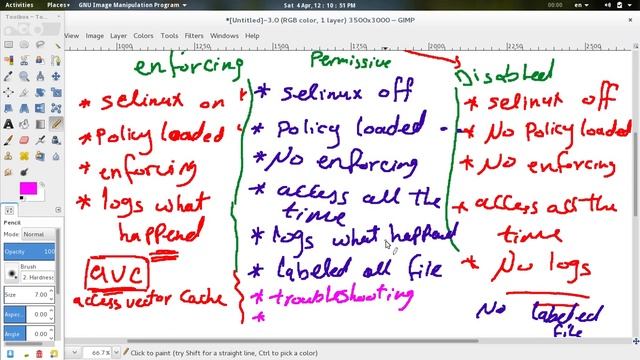 Activities Places GNU Image Manipulation Program Sat 4 Apr, 12 : 10 : 51 PM 00:00 en
Toolbox – To...
*[Untitled]-3.0 (RGB color, 1 layer) 3500x3000 – GIMP
Image Layer Colors Tools Filters Windows Help
1000 1250 1500 1750 2000 2250 2500
enforcing
* selinux on
* Policy loaded
* enforcing
* logs what
happend
avc
access vector Cache
Permissive
* selinux off
* Policy loaded -
* No enforcing
* access all the
time
* logs what happend
* labeled all file
* troubleshooting
*
Disabled
* selinux off
* No Policy loaded
* No enforcing
* access all the
time
* No logs
No labeled
file
Pencil
Mode Normal
Opacity 100
Brush
2. Hardness
Size 7.00
Aspec... 0.00
Angle 0.00
66.7%
Click to paint (try Shift for a straight line, Ctrl to pick a color)